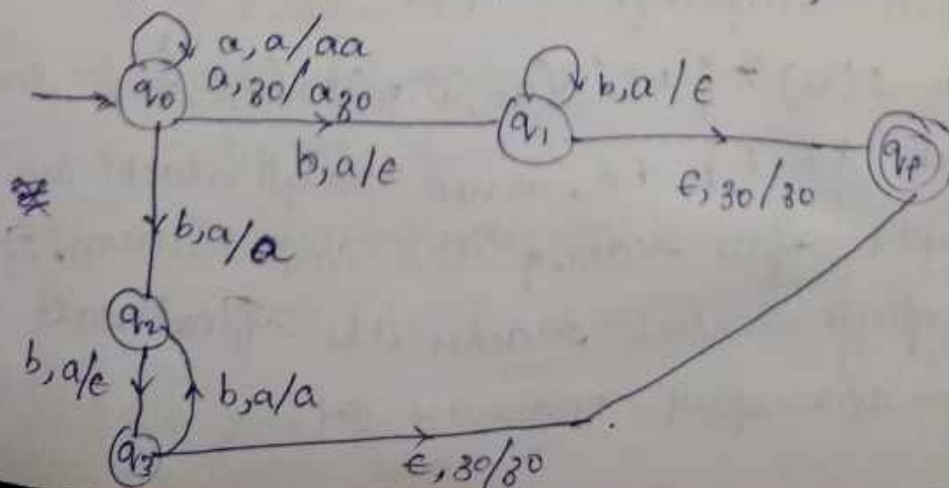 a, a/aa
q0
a, z0/az0
b, a/ϵ
q1
b, a/ϵ
qf
ϵ, z0/z0
b, a/a
q2
b, a/ϵ
b, a/a
q3
ϵ, z0/z0